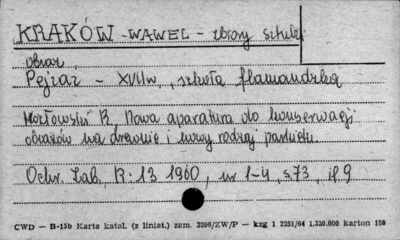 KRAKÓW - WAWEL - zbiory sztuki
obraz,
Pejzaż - XVII w., szkoła flamandzka
R, Nowa aparatura do konserwacji
obrazów na drewnie i nowy rodzaj parkietu.
Ochr. Zab, R: 13 1960, nr 1-4, s. 73, il 9
CWD — B-15b Karta katal. (z liniat.) zam. 2396/ZW/P — kzg 1 2251/64 1.330.000 karton 150